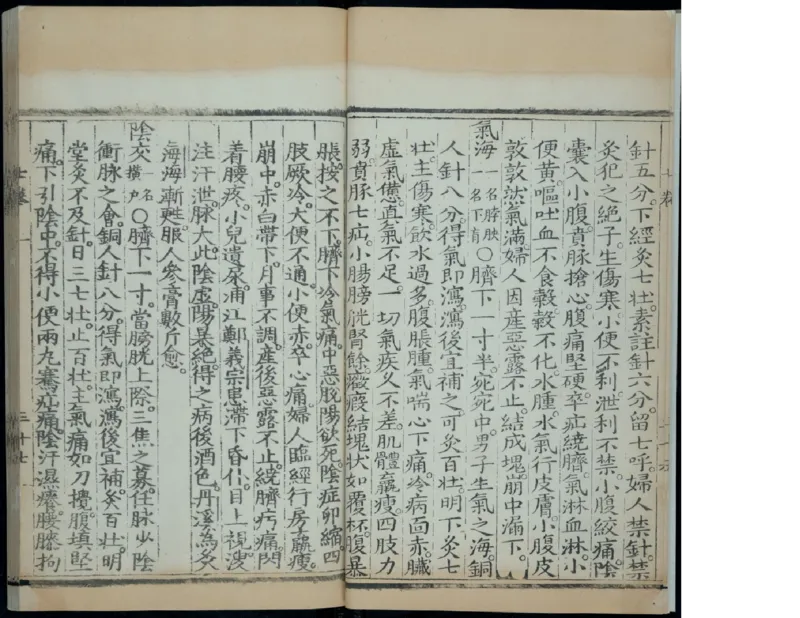 針五分。下經灸七壯。素註針六分。留七呼。婦人禁針。禁
灸。犯之絕子。主傷寒。小便不利。泄利不禁。小腹絞痛。陰
囊入小腹。賁豚搶心。腹痛堅硬。卒疝繞臍。氣淋血淋。小
便黃。嘔吐血。不食穀。穀不化。水腫。水氣行皮膚。小腹皮
敦敦然。氣滿。婦人因產惡露不止。結成塊。崩中漏下。
氣海 一名脖胦 一名下肓 ○臍下一寸半。宛宛中。男子生氣之海。銅
人針八分。得氣即瀉。瀉後宜補之。可灸百壯。明下灸七
壯。主傷寒。飲水過多。腹脹腫。氣喘心下痛。冷病面赤。臟
虛氣憊。真氣不足。一切氣疾久不差。肌體羸瘦。四肢力
弱。賁豚七疝。小腸膀胱腎餘。癥瘕結塊。狀如覆杯。腹暴
脹。按之不下。臍下冷氣痛。中惡脫陽欲死。陰症卵縮。四
肢厥冷。大便不通。小便赤。卒心痛。婦人臨經行房羸瘦。
崩中。赤白帶下。月事不調。產後惡露不止。繞臍㽲痛。閃
着腰疼。小兒遺尿。浦江鄭義宗患滯下昏仆。目上視。溲
注汗泄。脉大。此陰虛。陽暴絕。得之病後酒色。丹溪為灸
海。漸甦。服人參膏數斤愈。
陰交 一名橫戶 ○臍下一寸。當膀胱上際。三焦之募。任脉少陰
衝脉之會。銅人針八分。得氣即瀉。瀉後宜補。灸百壯。明
堂灸不及針。日三七壯。止百壯。主氣痛如刀攪。腹填堅
痛。下引陰中。不得小便。兩丸騫。疝痛。陰汗濕癢。腰膝拘
七卷
三十七